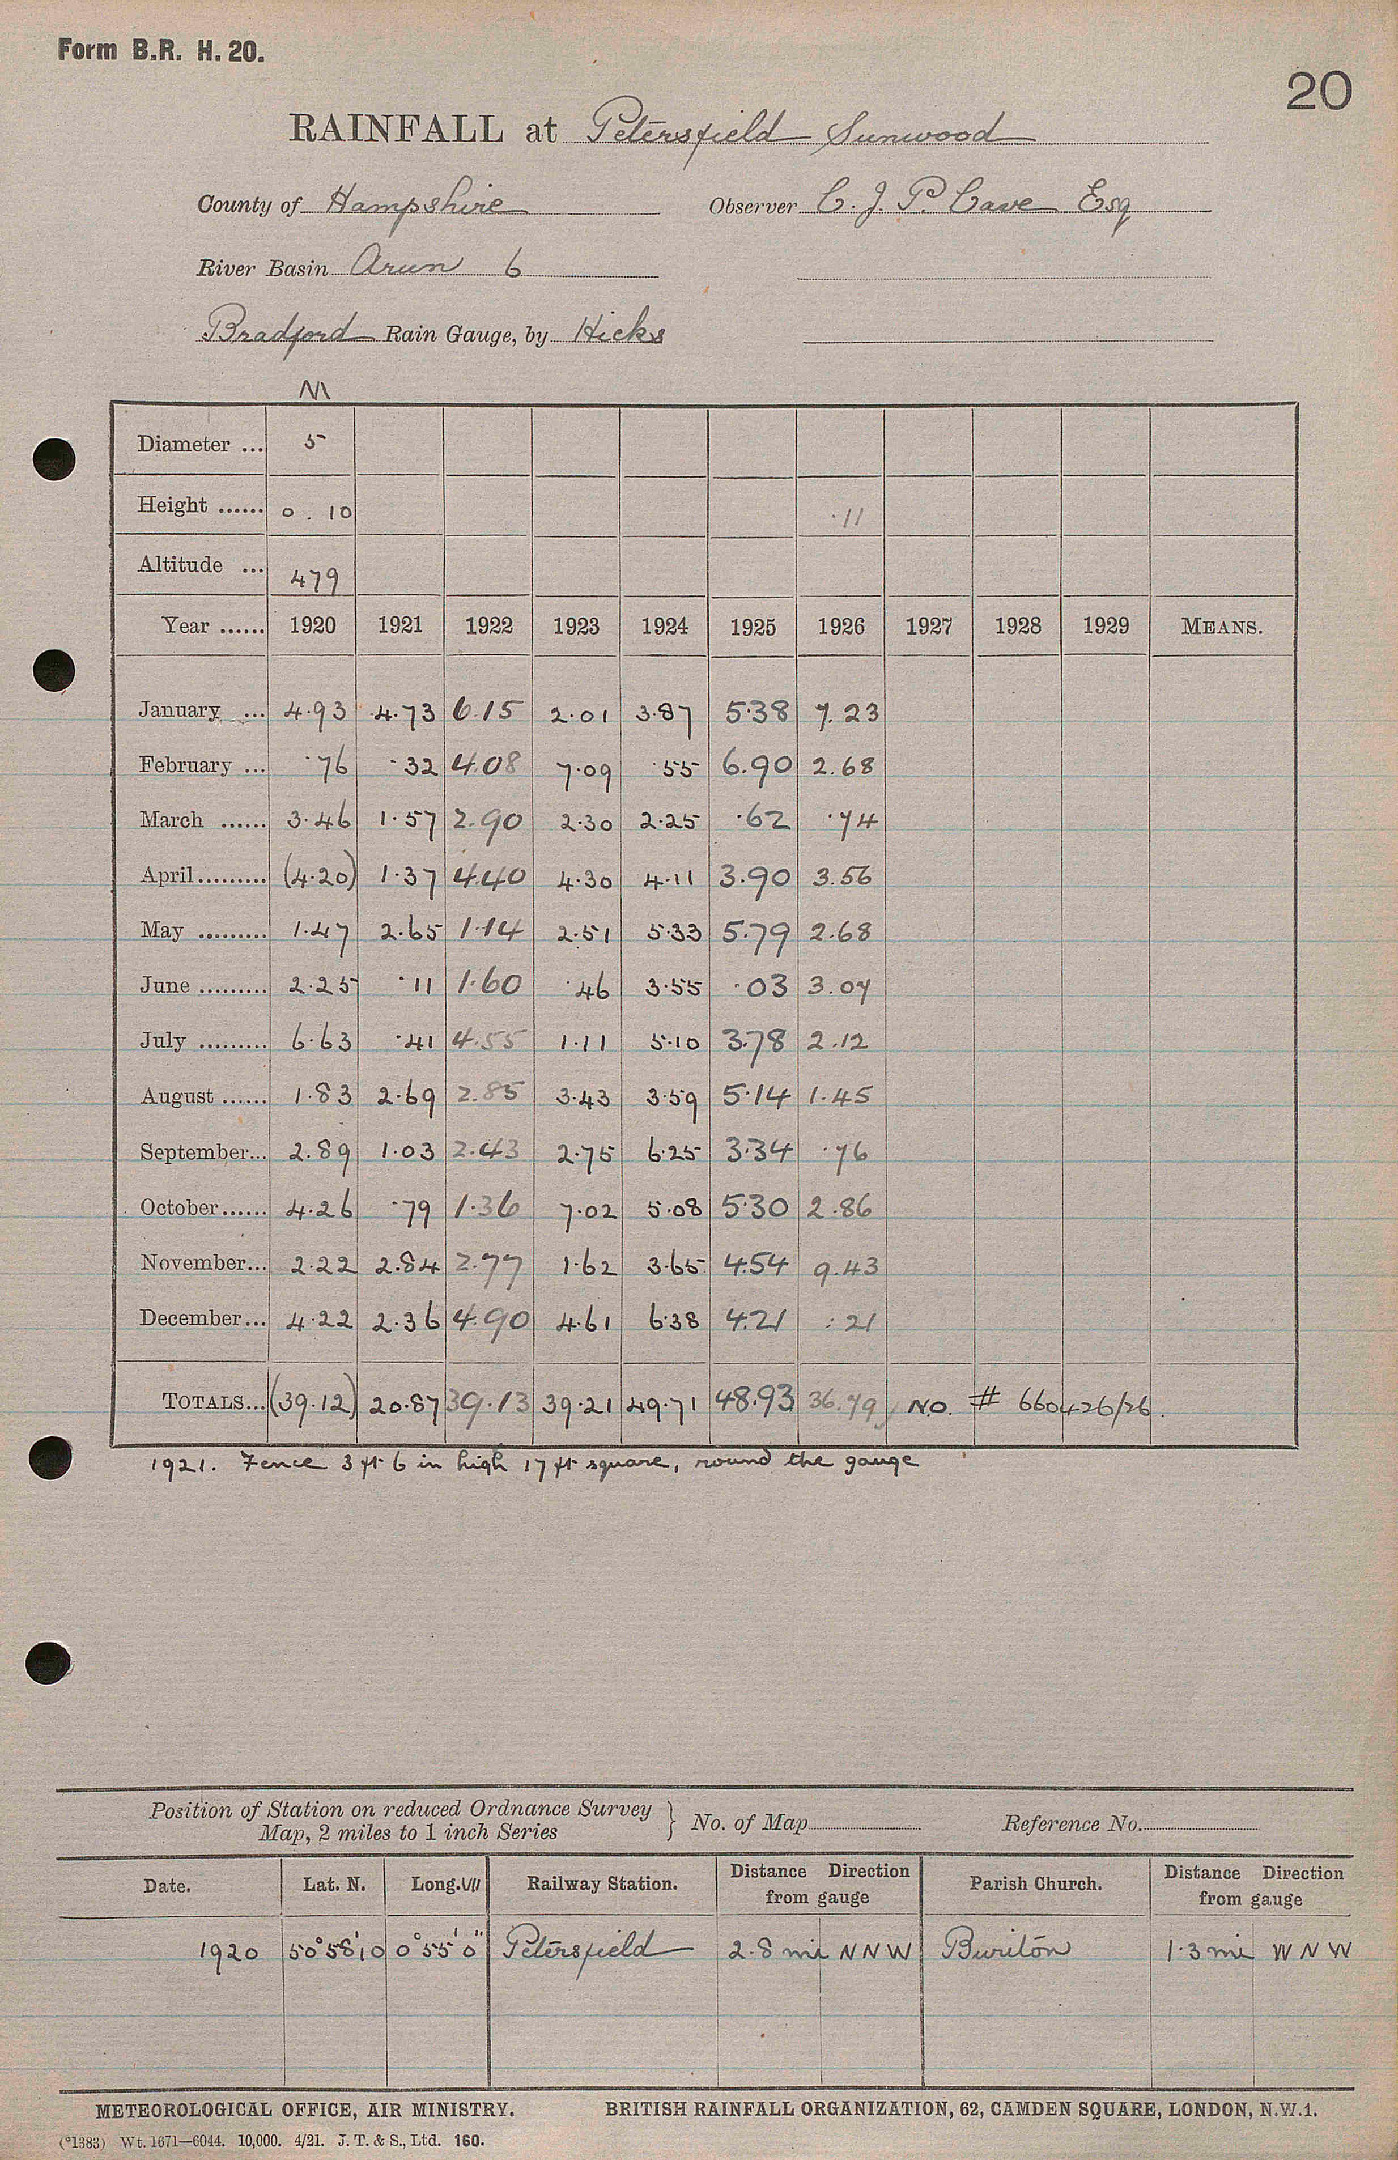 Form B.R. H. 20.
20
RAINFALL at Petersfield Sunwood
County of Hampshire Observer C. J. P. Cave Esq
River Basin Arun 6
Bradford Rain Gauge, by Hicks
M
Diameter ... 5
Height ...... 0 . 10 .11
Altitude ... 479
Year ...... 1920 1921 1922 1923 1924 1925 1926 1927 1928 1929 MEANS.
January ... 4.93 4.73 6.15 2.01 3.87 5.38 7.23
February ... .76 .32 4.08 7.09 .55 6.90 2.68
March ...... 3.46 1.57 2.90 2.30 2.25 .62 .74
April......... (4.20) 1.37 4.40 4.30 4.11 3.90 3.56
May ......... 1.47 2.65 1.14 2.51 5.33 5.79 2.68
June ......... 2.25 .11 1.60 .46 3.55 .03 3.07
July ......... 6.63 .41 4.55 1.11 5.10 3.78 2.12
August ...... 1.83 2.69 2.85 3.43 3.59 5.14 1.45
September... 2.89 1.03 2.43 2.75 6.25 3.34 .76
October...... 4.26 .79 1.36 7.02 5.08 5.30 2.86
November... 2.22 2.84 2.77 1.62 3.65 4.54 9.43
December... 4.22 2.36 4.90 4.61 6.38 4.21 .21
TOTALS... (39.12) 20.87 39.13 39.21 49.71 48.93 36.79 NO. # 660426/26.
1921. Fence 3 ft 6 in high 17 ft square, round the gauge
Position of Station on reduced Ordnance Survey
Map, 2 miles to 1 inch Series } No. of Map Reference No.
Date. Lat. N. Long. W Railway Station. Distance Direction from gauge Parish Church. Distance Direction from gauge
1920 50° 58' 10 0° 55' 0" Petersfield 2.8 mi N N W Buriton 1.3 mi W N W
METEOROLOGICAL OFFICE, AIR MINISTRY. BRITISH RAINFALL ORGANIZATION, 62, CAMDEN SQUARE, LONDON, N.W.1.
(*1383) Wt. 1671—6044. 10,000. 4/21. J. T. & S., Ltd. 160.